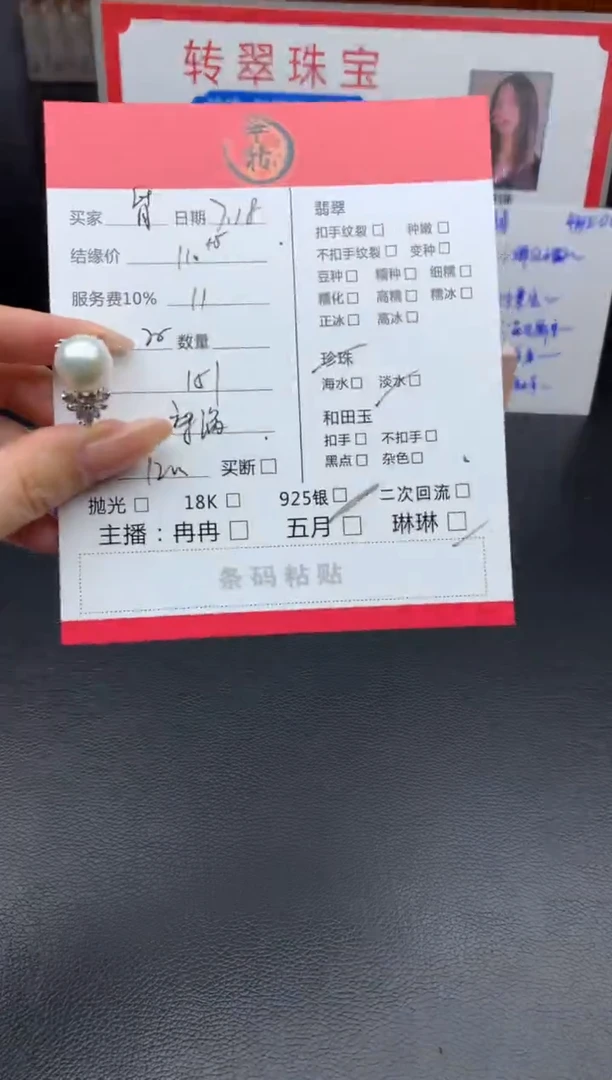 转翠珠宝
买家 肖 日期 7.18
结缘价 110+15
服务费10% 11
数量
151
买断☐
翡翠
扣手纹裂☐ 种嫩☐
不扣手纹裂☐ 变种☐
豆种☐ 糯种☐ 细糯☐
糯化☐ 高糯☐ 糯冰☐
正冰☐ 高冰☐
珍珠
海水☐ 淡水☐
和田玉
扣手☐ 不扣手☐
黑点☐ 杂色☐
抛光☐ 18K☐ 925银☐ 二次回流☐
主播：冉冉☐ 五月☐ 琳琳☐
条码粘贴